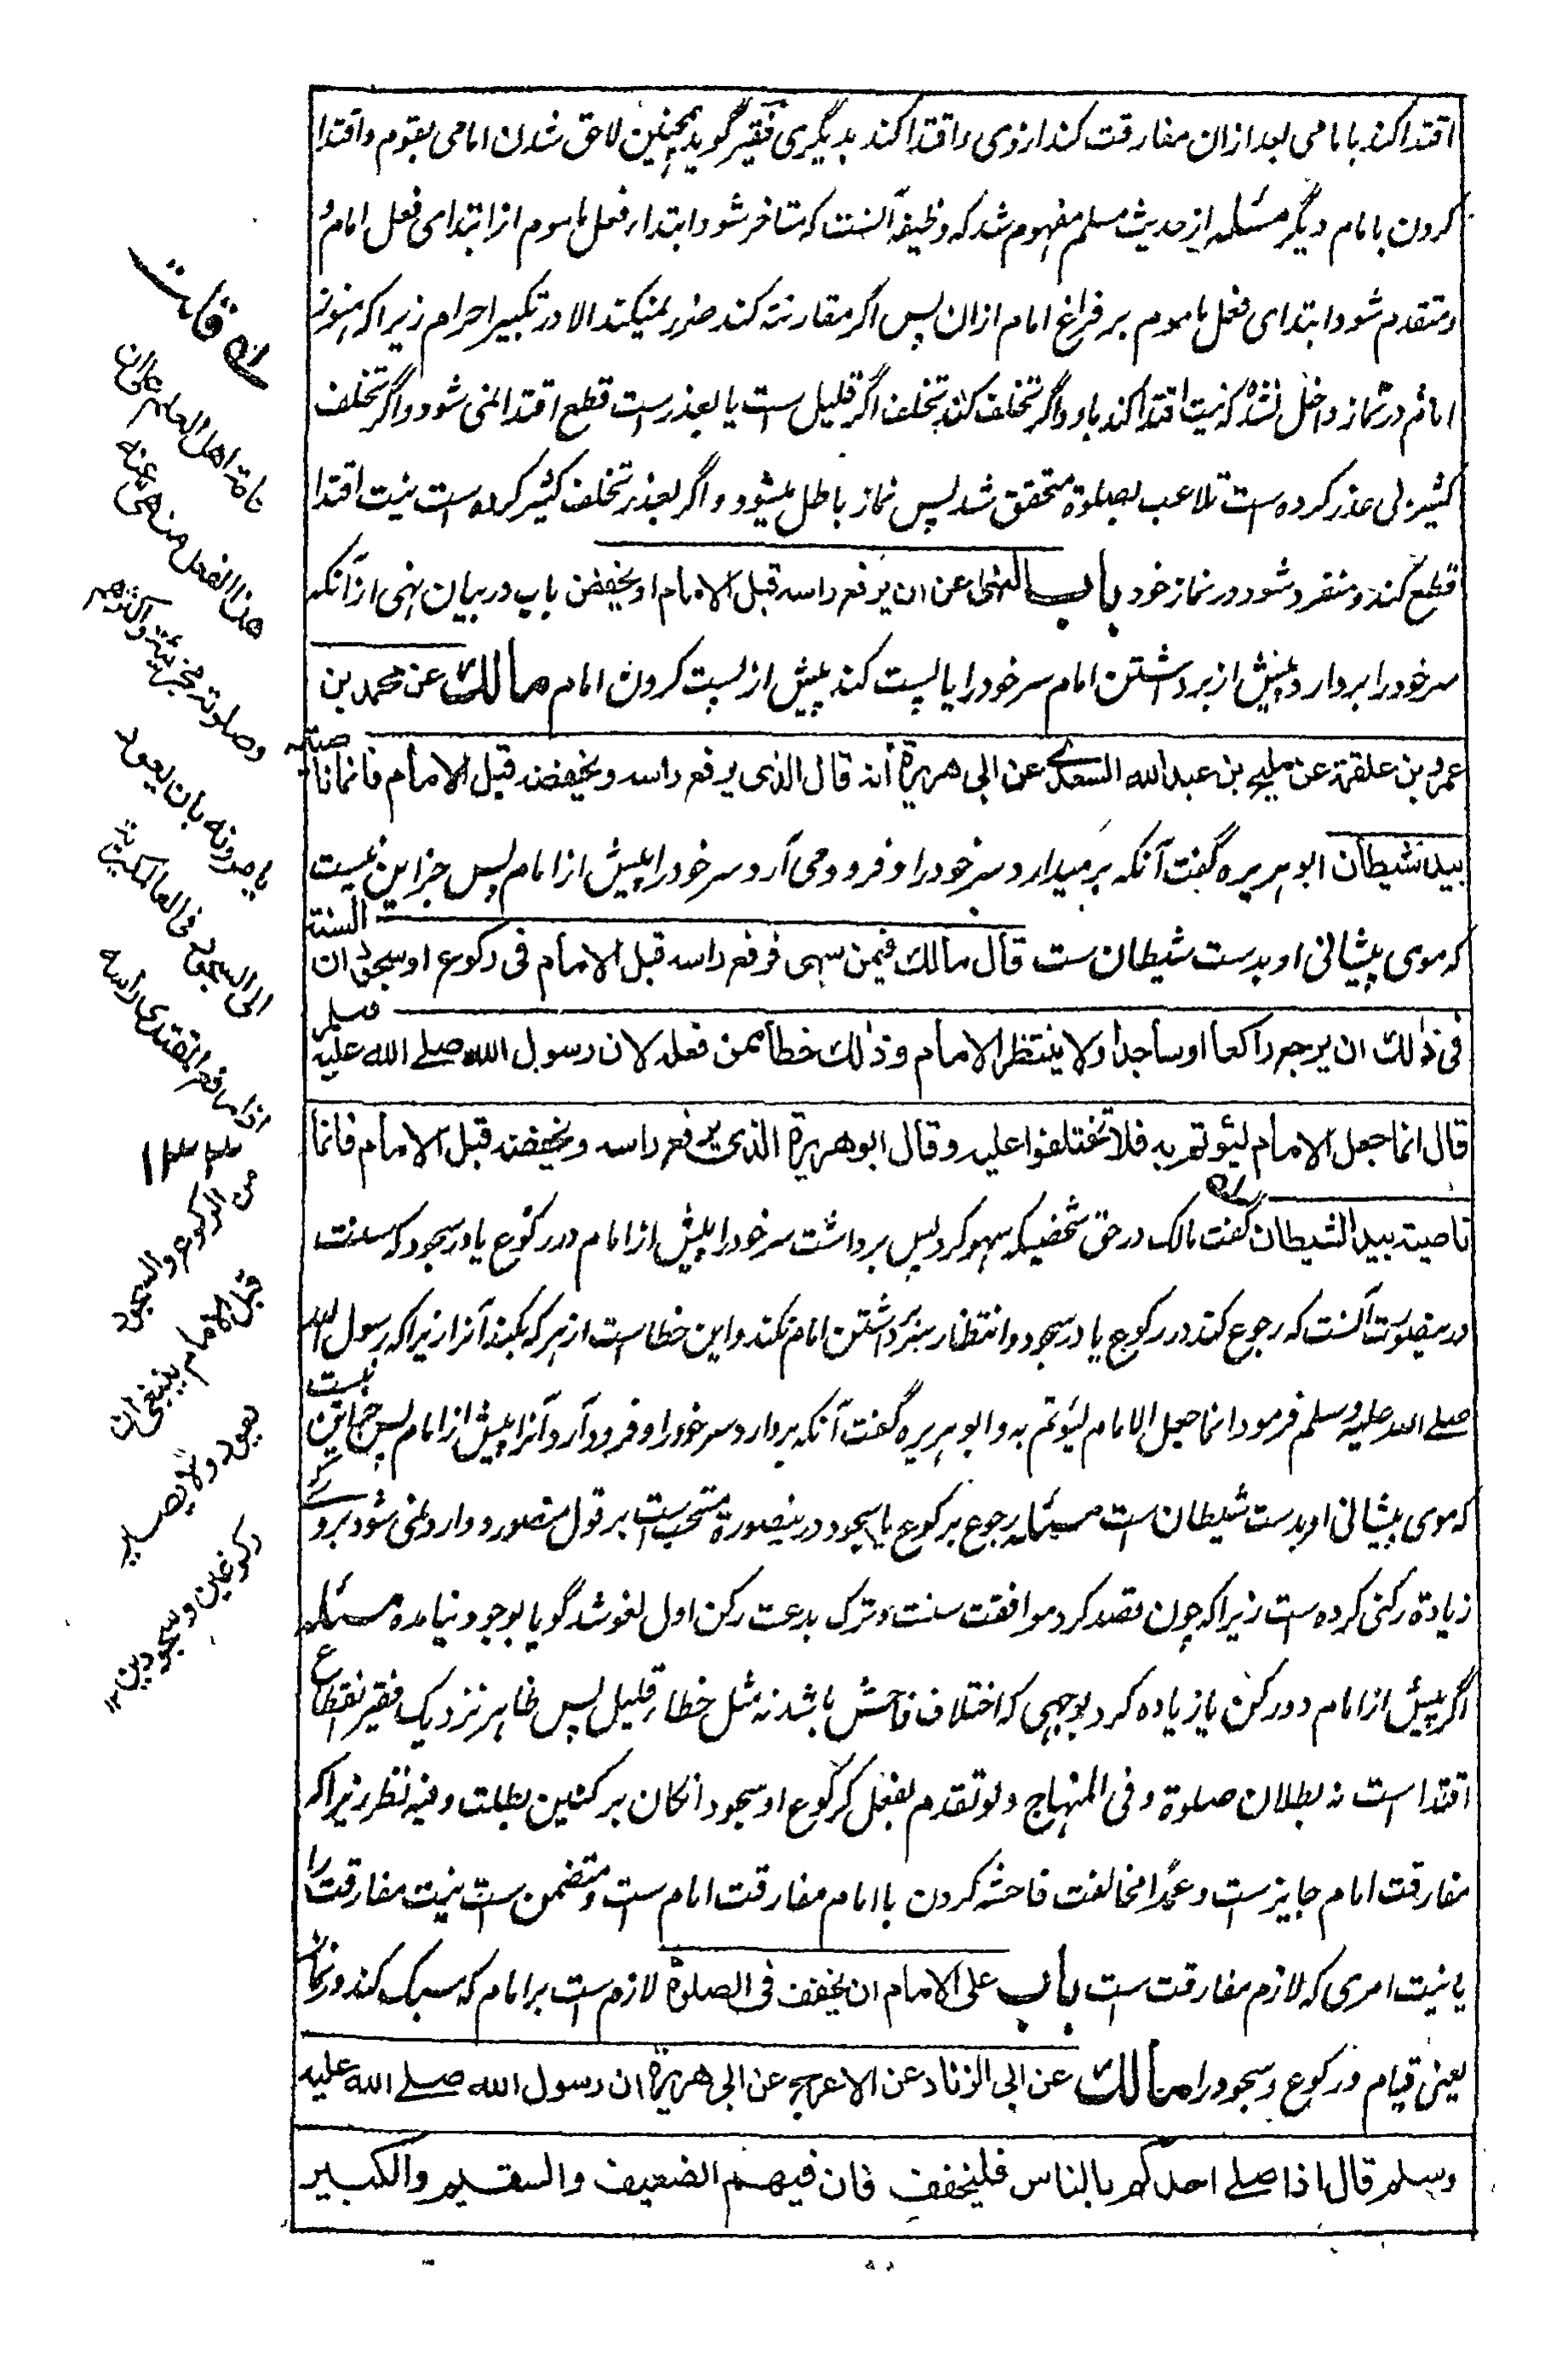 اقتدا کند بامامی بعد ازان مفارقت کند ازوی و اقتدا کند بدیگری فقیر گوید همچنین لاحق شدن امامی بقوم و اقتدا
کردن بامام دیگر مسئله از حدیث مسلم مفهوم شد که وظیفه آنست که متاخر شود ابتداء فعل ماموم از ابتدای فعل امام و
و متقدم شود ابتدای فعل ماموم بر فراغ امام ازان پس اگر مقارنته کند ضرر نمیکند الا در تکبیر احرام زیرا که هنوز
امام در نماز داخل نشده که نیت اقتدا کند باو و اگر تخلف کند بتخلف اگر قلیل ست یا بعذرست قطع اقتدا نمی شود و اگر تخلف
کثیر بی عذر کرده ست تلاعب بصلوة متحقق شد پس نماز باطل میشود و اگر بعذر تخلف کثیر کرده ست نیت اقتدا
قطع کند و منفرد شود در نماز خود باب النهی عن ان یرفع راسه قبل الامام او یخفض باب در بیان نهی از آنکه
سر خود را بردارد پیش از برداشتن امام سر خود را یا پست کند پیش از پست کردن امام مالك عن محمد بن
عمرو بن علقمة عن ملیح بن عبد الله السعدی عن ابی هریرة أنه قال الذی یرفع راسه ویخفضه قبل الامام فانما ناصیته
بید شیطان ابو هریره گفت آنکه برمیدارد سر خود را و فرود می آرد سر خود را پیش از امام پس جز این نیست
که موی پیشانی او بدست شیطان ست قال مالك فیمن سهی فرفع راسه قبل الامام فی رکوع او سجود ان السنة
فی ذلك ان یرجع راکعا او ساجدا ولا ینتظر الامام وذلك خطأ ممن فعله لان رسول الله صلے الله علیه وسلم
قال انما جعل الامام لیؤتم به فلا تختلفوا علیه وقال ابو هریرة الذی یرفع راسه ویخفضه قبل الامام فانما
ناصیته بید الشیطان گفت مالک در حق شخصیکه سهو کرد پس برداشت سر خود را پیش از امام در رکوع یا در سجود که سنت
درینصورت آنست که رجوع کند در رکوع یا در سجود و انتظار سر برداشتن امام نکند و این خطاست از هر که بکند آنرا زیرا که رسول الله
صلے الله علیه وسلم فرمود انما جعل الامام لیؤتم به و ابو هریره گفت آنکه بردارد سر خود را و فرود آرد آنرا پیش از امام پس جز این نیست
که موی پیشانی او بدست شیطان ست مسئله رجوع برکوع یا سجود درینصورة مستحب ست بر قول منصور و وارد نمی شود بروے که
زیادة رکنی کرده ست زیرا که چون قصد کرد موافقت سنت و ترک بدعت رکن اول لغو شد گویا بوجود نیامده مسئله
اگر پیش از امام دو رکن یا زیاده کرد بوجهی که اختلاف فاحش باشد نه مثل خطاء قلیل پس ظاهر نزدیک فقیر انقطاع
اقتداست نه بطلان صلوة وفی المنهاج ولو تقدم بفعل کرکوع او سجود ان کان برکنین بطلت وفیه نظر زیرا که
مفارقت امام جایزست و عمدًا مخالفت فاحشه کردن با امام مفارقت امام ست و متضمن ست نیت مفارقت را
یا نیت امری که لازم مفارقت ست باب علی الامام ان یخفف فی الصلوة لازم ست بر امام که سبک کند نماز
یعنی قیام و رکوع و سجود را مالك عن ابی الزناد عن الاعرج عن ابی هریرة ان رسول الله صلے الله علیه
وسلم قال اذا صلے احدکم بالناس فلیخفف فان فیهم الضعیف والسقیم والکبیر
سله قلت
عامة اهل العلم علی ان
هذا الفعل منهی عنه
وصلوته مجزیة و اکثرهم
یامرونه بان یعود
الی السجود فی العالمگیریة
اذا رفع المقتدی راسه
من الرکوع والسجود
قبل الامام ینبغی ان
یعود ولا یصیر
رکوعین وسجودین ۱۲